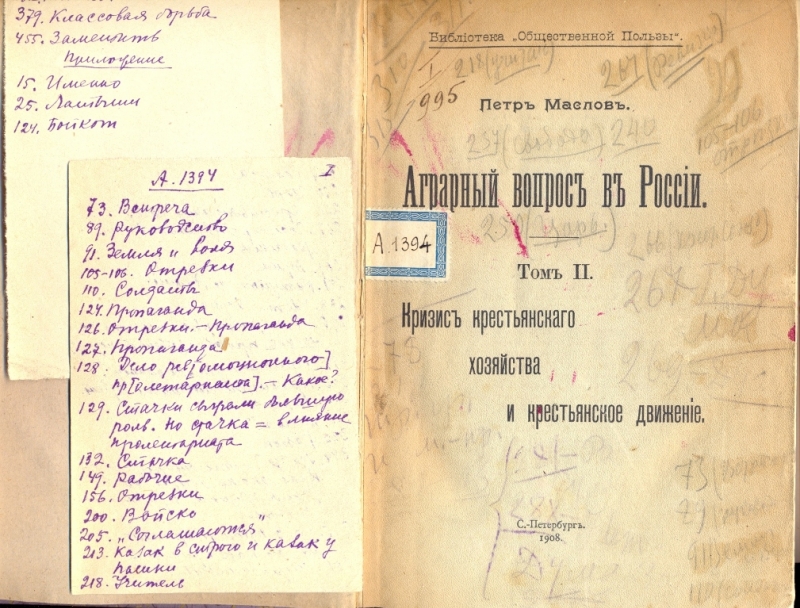 379. Классовая борьба
455. Заменить
Приложение
15. Именно
25. Латыши
124. Бойкот
А. 1394
I
73. Встреча
89. Руководство
91. Земля и воля
105-106. Отрезки
110. Солдаты
124. Пропаганда
126. Отрезки. – Пропаганда
127. Пропаганда
128. Дело рев[олюционного]
пр[олетариата]. – Какое?
129. Стачки сыграли большую
роль. Но стачка = влияние
пролетариата
132. Стачка
149. Рабочие
156. Отрезки
200. Войско
205. „Соглашаются"
213. Казак в строю и казак у
пашни
218. Учитель
Библіотека „Общественной Пользы".
218 (учител)
I
995
Петръ Масловъ.
240
105-106
Аграрный вопросъ въ Россіи.
А. 1394
(Царь)
Томъ II.
267
Кризисъ крестьянскаго
хозяйства
и крестьянское движеніе.
73
С.-Петербургъ.
1908.